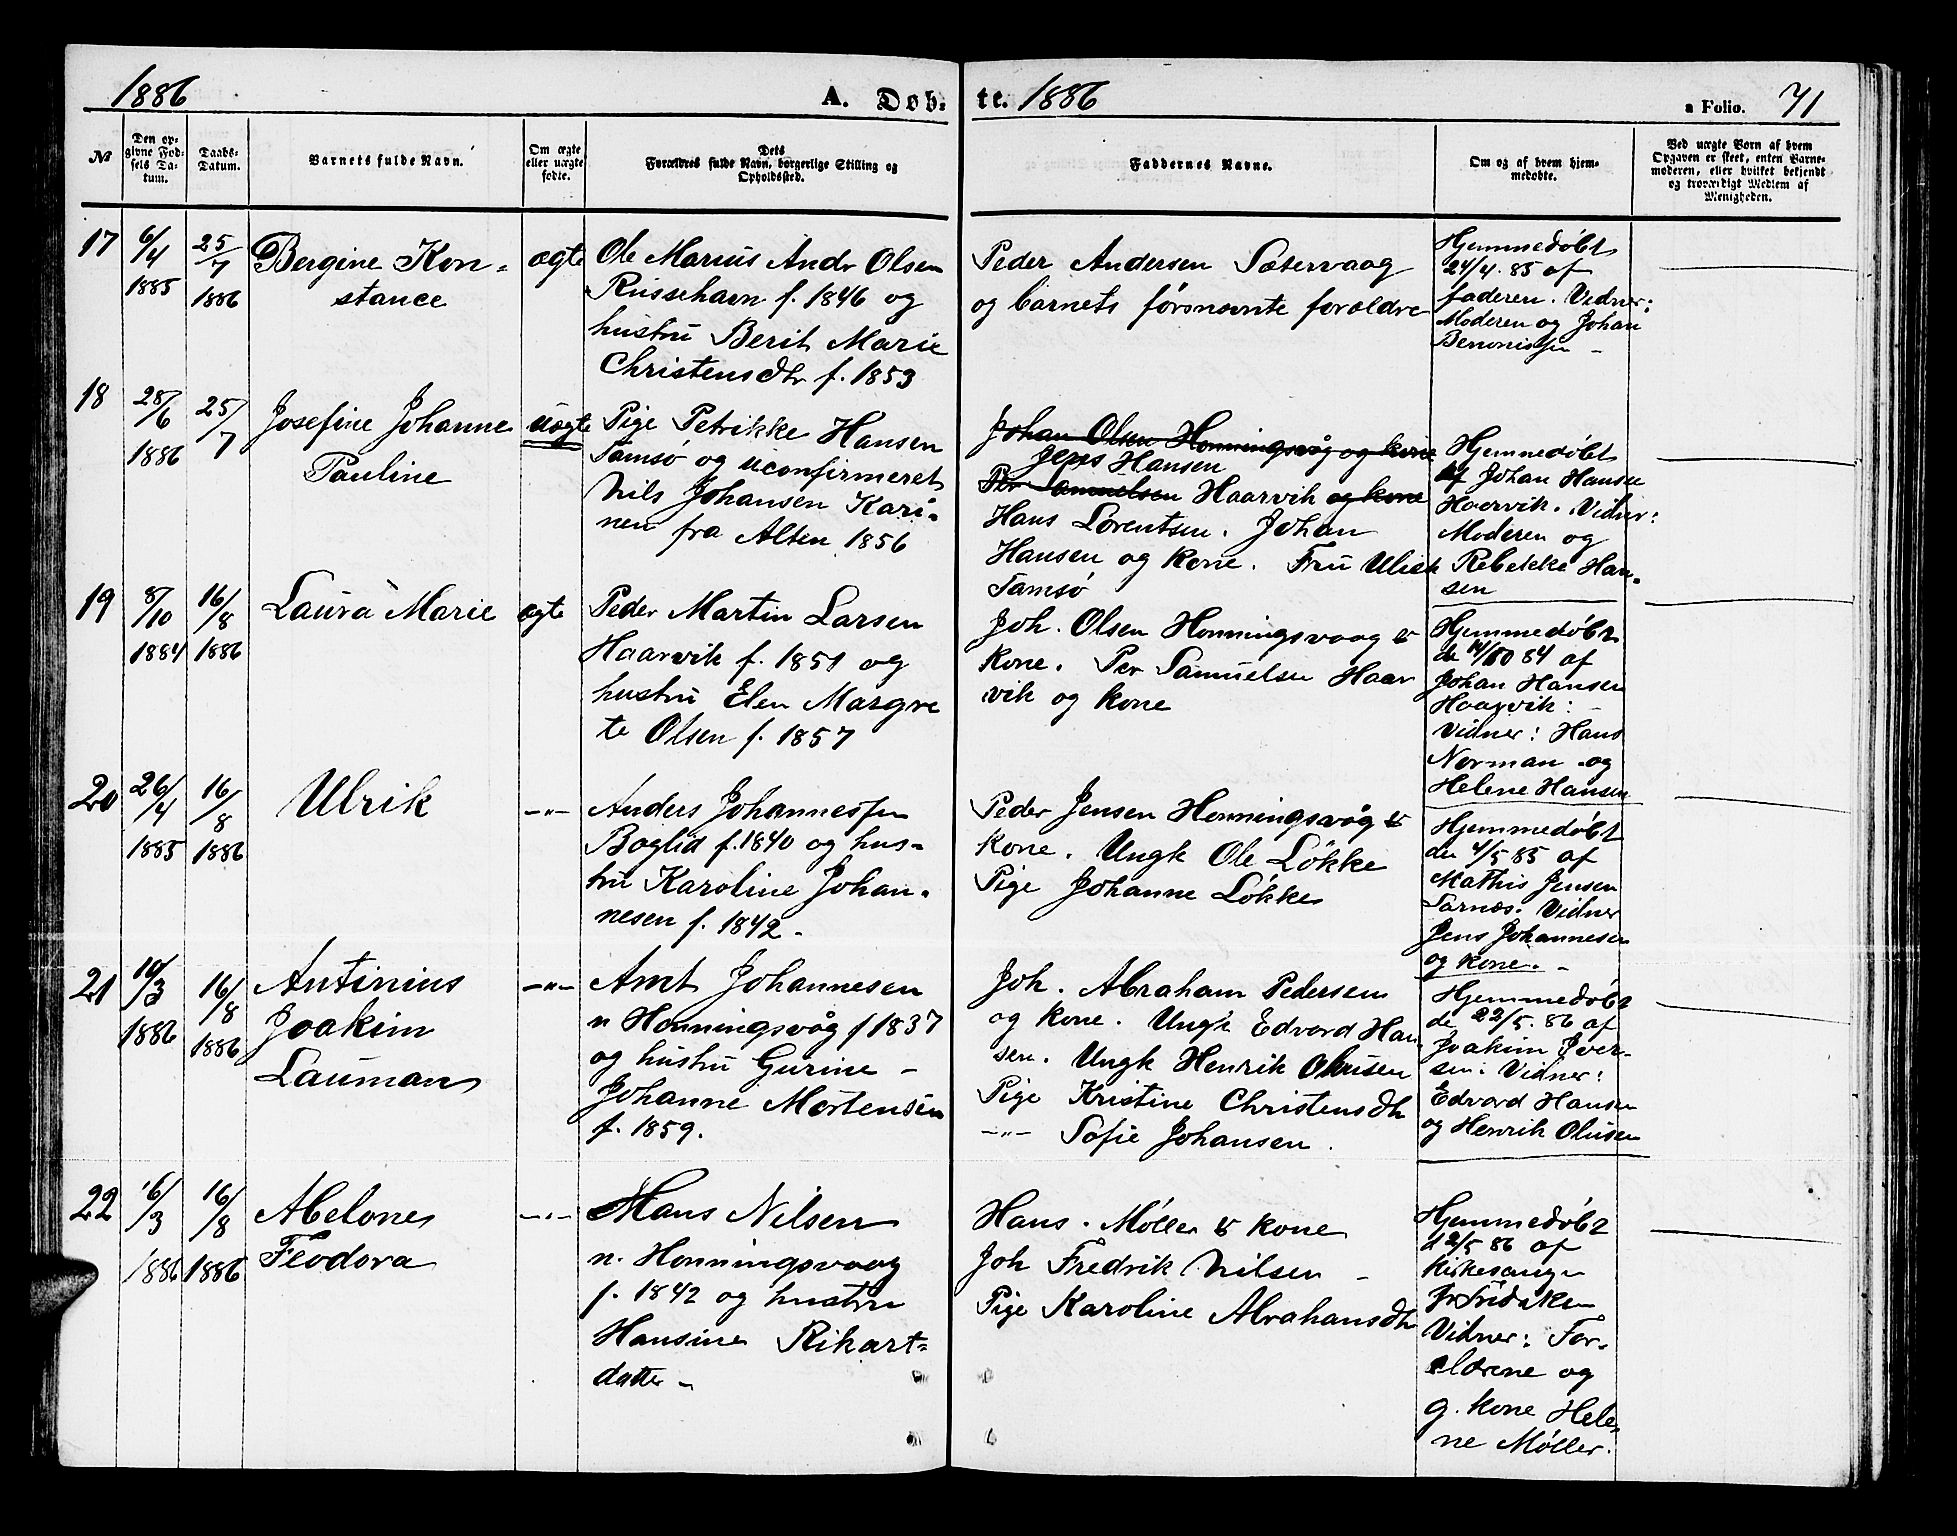 1886
A. Døb-
te. 1886
a Folio. 71
№
Den op-
givne Fød-
sels Da-
tum.
Daabs-
Datum.
Barnets fulde Navn.
Om ægte
eller uægte
fødte.
Dets
Forældres fulde Navn, borgerlige Stilling og
Opholdssted.
Faddernes Navne.
Om og af hvem hjem-
medøbte.
Ved uægte Børn af hvem
Opgaven er skeet, enten Barne-
moderen, eller hvilket bekjendt
og troværdigt Medlem af
Menigheden.
17
6/4
1885
25/7
1886
Bergine Kon-
stance
ægte
Ole Marius Andr Olsen
Russehavn f. 1846 og
hustru Berit Marie
Christensdtr f. 1853
Peder Andersen Sætervaag
og barnets førsnævnte forældre
Hjemmedøbt
24/4. 85 af
faderen. Vidner:
Moderen og Johan
Benonissen -
18
28/6
1886
25/7
Josefine Johanne
Pauline
uægte
Pige Petrikke Hansen
Tamsø og uconfirmeret
Nils Johansen Kari-
nen fra Alten 1856
Johan Olsen Honningsvåg og kone
Jens Hansen
Per Samuelsen Haarvik og kone
Hans Lorentsen. Johan
Hansen og kone. Fru Ulich
Tamsø
Hjemmedøbt
af Johan Hansen
Haarvik. Vidner:
Moderen og
Rebekke Han-
sen
19
8/10
1884
16/8
1886
Laura Marie
ægte
Peder Martin Larsen
Haarvik f. 1851 og
hustru Elen Margre
te Olsen f. 1857
Joh. Olsen Honningsvaag &
kone. Per Samuelsen Haar
vik og kone
Hjemmedøbt
de 14/10 84 af
Johan Hansen
Haarvik:
Vidner: Hans
Norman og
Helene Hansen
20
26/4
1885
16/8
1886
Ulrik
-"-
Anders Johannessen
Boglid f. 1840 og hus-
tru Karoline Johan-
nesen f. 1842 -
Peder Jensen Honningsvåg &
kone. Ungk Ole Løkke
Pige Johanne Løkke
Hjemmedøbt
den 4/5 85 af
Mathis Jensen
Sarnes. Vidner
Jens Johannesen
og kone. -
21
10/3
1886
16/8
1886
Antinius
Joakim
Lauman
-"-
Amt Johannesen
n Honningsvåg f 1837
og hustru Gurine -
Johanne Mortensen
f. 1859.
Joh. Abraham Pedersen
og kone. Ungk Edvard Han-
sen. Ungk Henrik Olusen
Pige Kristine Christensdtr
-"- Sofie Johansen.
Hjemmedøbt
de 22/5. 86 af
Joakim Iver-
sen. Vidner:
Edvard Hansen
og Henrik Olusen
22
16/3
1886
16/8
1886
Abelone
Feodora
-"-
Hans Nilsen
n. Honningsvaag
f. 1842 og hustru
Hansine Rikart-
datter -
Hans. Møller & kone
Joh Fredrik Nilsen -
Pige Karoline Abrahamsdtr
Hjemmedøbt
d 2/5 86 af
kirkesanger
Vidner: For-
ældrene og
g. kone Hele-
ne Møller.